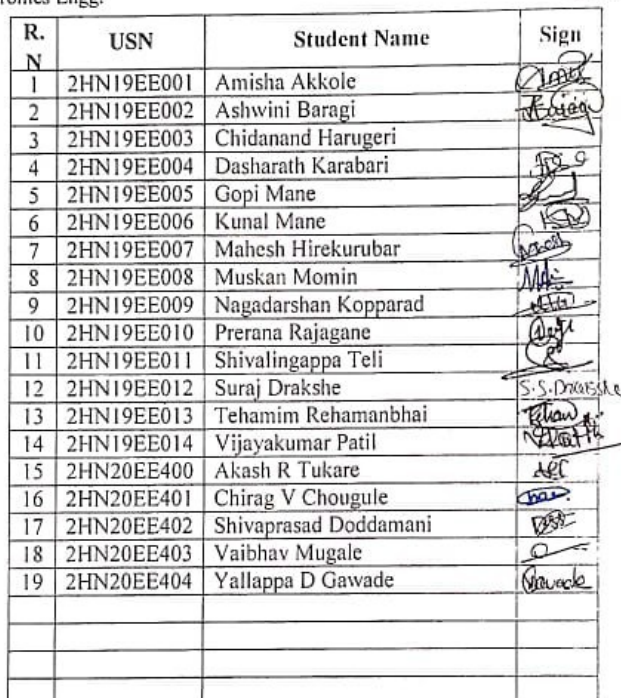 Engg.
R. N USN Student Name Sign
1 2HN19EE001 Amisha Akkole
2 2HN19EE002 Ashwini Baragi Baragi
3 2HN19EE003 Chidanand Harugeri
4 2HN19EE004 Dasharath Karabari
5 2HN19EE005 Gopi Mane
6 2HN19EE006 Kunal Mane
7 2HN19EE007 Mahesh Hirekurubar
8 2HN19EE008 Muskan Momin
9 2HN19EE009 Nagadarshan Kopparad
10 2HN19EE010 Prerana Rajagane
11 2HN19EE011 Shivalingappa Teli
12 2HN19EE012 Suraj Drakshe S.S.Drakshe
13 2HN19EE013 Tehamim Rehamanbhai
14 2HN19EE014 Vijayakumar Patil
15 2HN20EE400 Akash R Tukare
16 2HN20EE401 Chirag V Chougule
17 2HN20EE402 Shivaprasad Doddamani
18 2HN20EE403 Vaibhav Mugale
19 2HN20EE404 Yallappa D Gawade Gawade